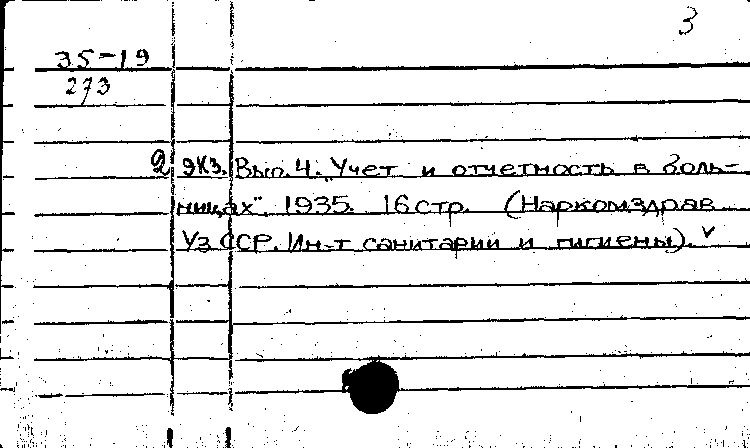 3
35-19
273
2 экз. Вып. 4. "Учет и отчетность в боль-
ницах". 1935. 16 стр. (Наркомздрав
УзССР. Ин-т санитарии и гигиены). ✓